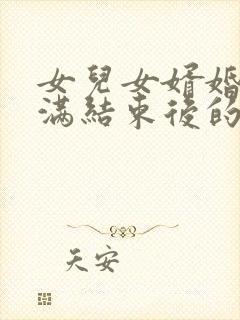 女兒女婿婚
滿結束後的
天安